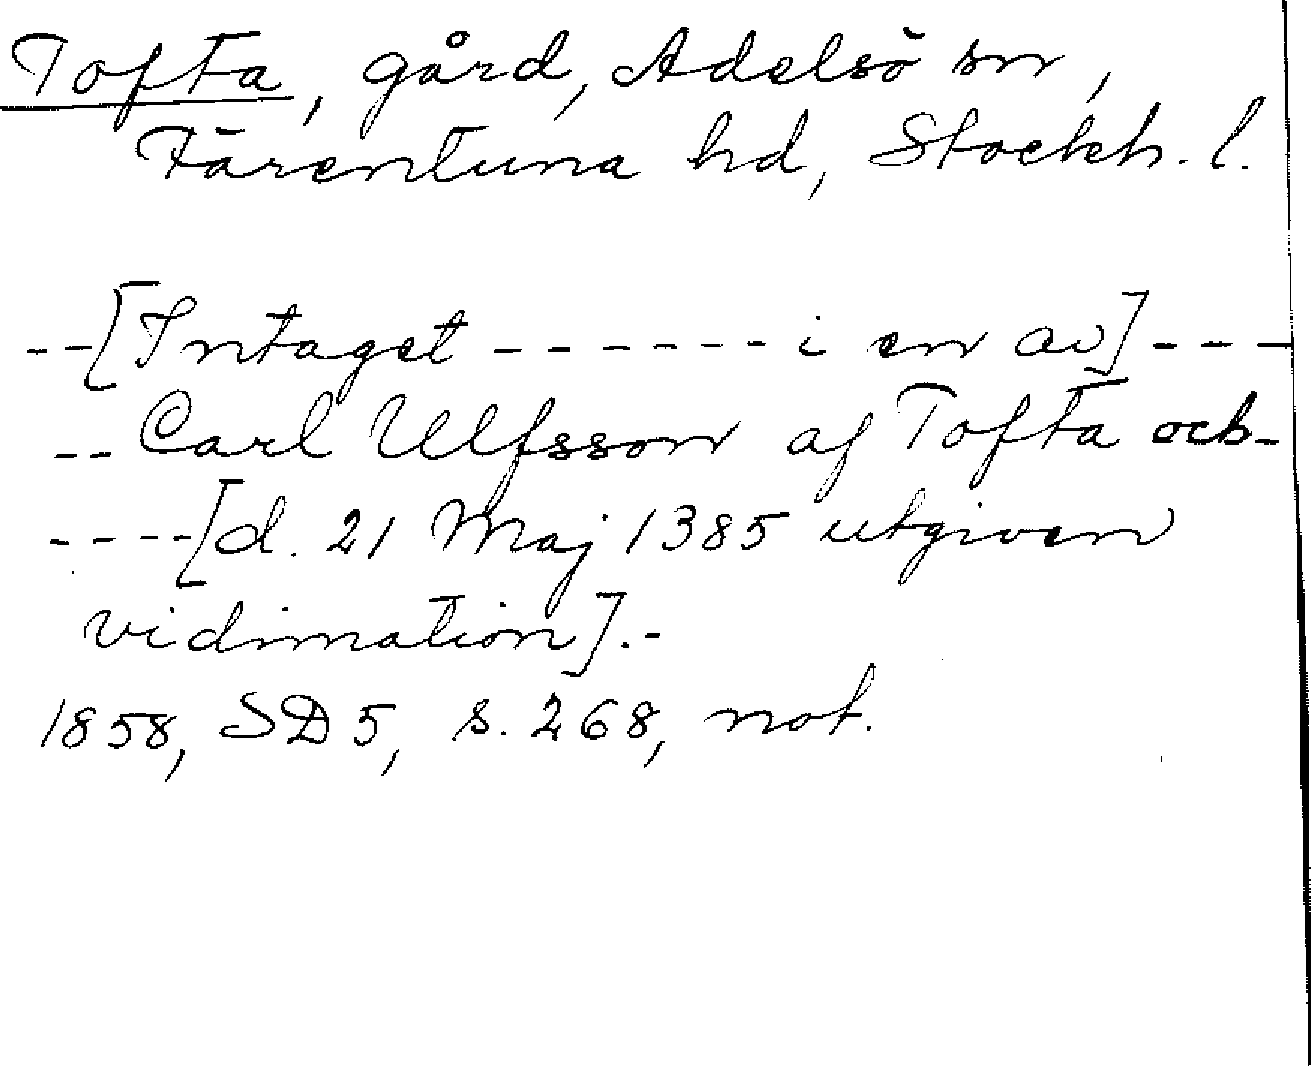 Tofta, gård, Adelsö sn,
Färentuna hd, Stockh. l.
--[Intaget ------ i en av]---
--Carl Ulfsson af Tofta och-
----[d. 21 Maj 1385 utgiven
vidimation].-
1858, SD 5, s. 268, not.